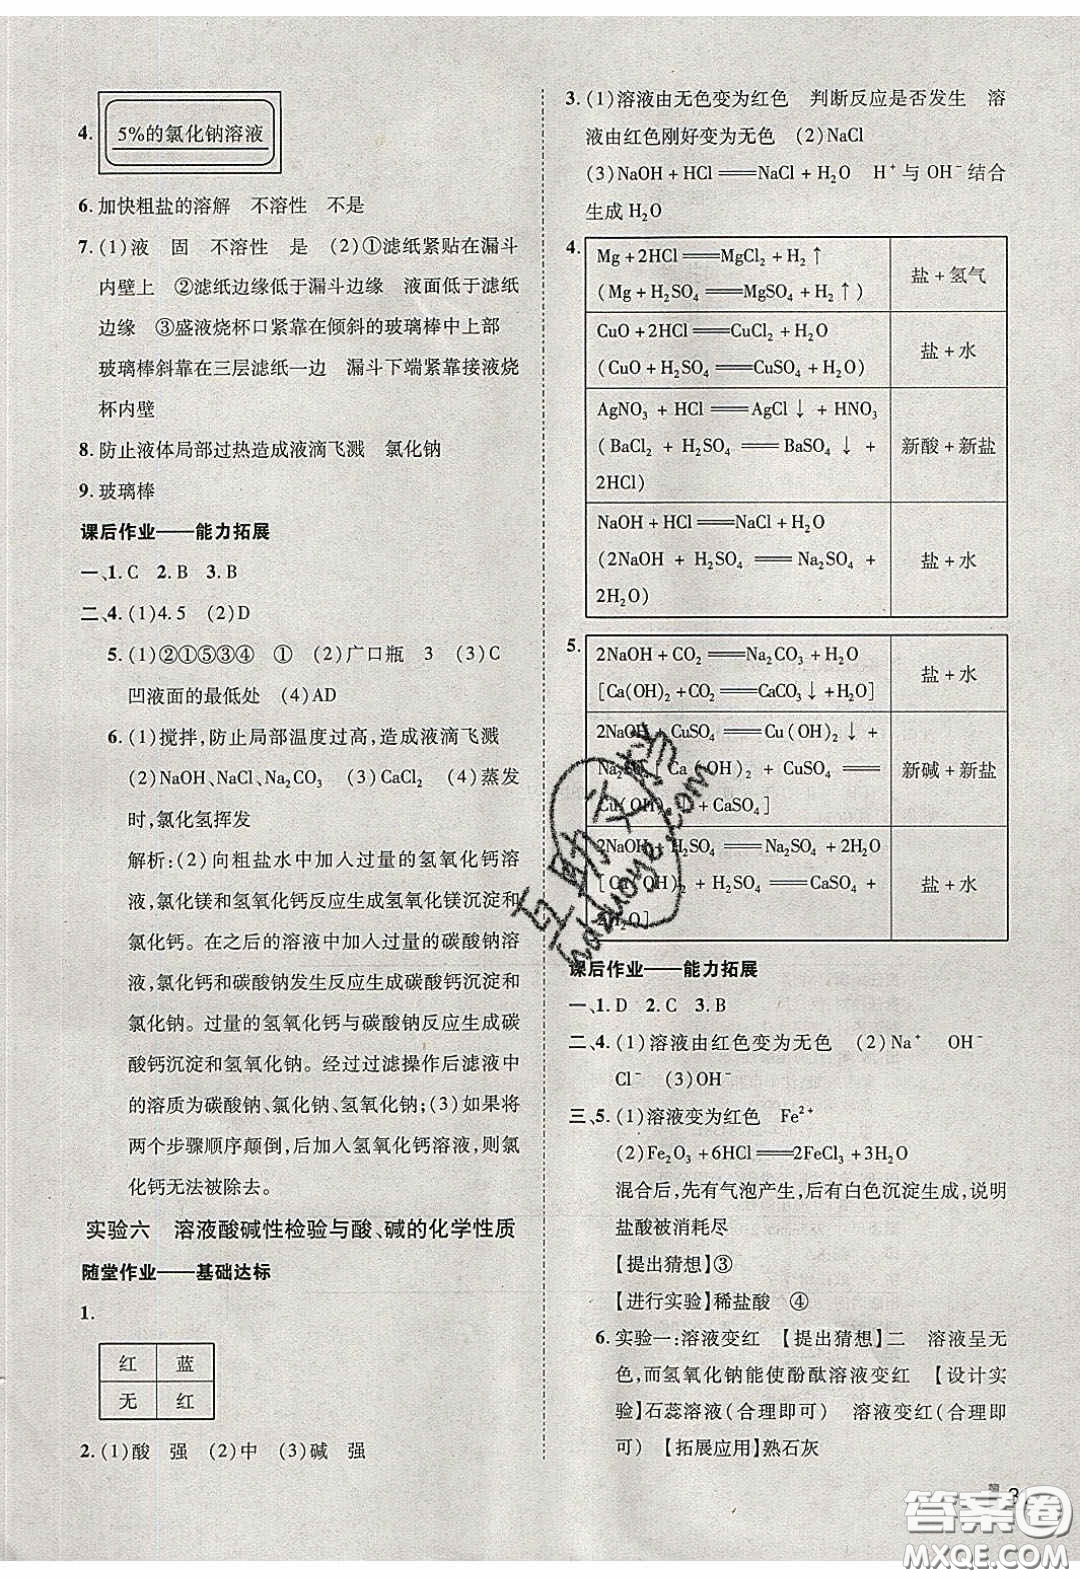 4. 5%的氯化钠溶液
6. 加快粗盐的溶解　不溶性　不是
7. (1)液　固　不溶性　是　(2)①滤纸紧贴在漏斗
内壁上　②滤纸边缘低于漏斗边缘　液面低于滤纸
边缘　③盛液烧杯口紧靠在倾斜的玻璃棒中上部
玻璃棒斜靠在三层滤纸一边　漏斗下端紧靠接液烧
杯内壁
8. 防止液体局部过热造成液滴飞溅　氯化钠
9. 玻璃棒
课后作业——能力拓展
一、1. C　2. B　3. B
二、4. (1)4.5　(2)D
5. (1)②①⑤③④　①　(2)广口瓶　3　(3)C
凹液面的最低处　(4)AD
6. (1)搅拌,防止局部温度过高,造成液滴飞溅
(2)NaOH、NaCl、Na₂CO₃　(3)CaCl₂　(4)蒸发
时,氯化氢挥发
解析:(2)向粗盐水中加入过量的氢氧化钙溶
液,氯化镁和氢氧化钙反应生成氢氧化镁沉淀和
氯化钙。在之后的溶液中加入过量的碳酸钠溶
液,氯化钙和碳酸钠发生反应生成碳酸钙沉淀和
氯化钠。过量的氢氧化钙与碳酸钠反应生成碳
酸钙沉淀和氢氧化钠。经过过滤操作后滤液中
的溶质为碳酸钠、氯化钠、氢氧化钠;(3)如果将
两个步骤顺序颠倒,后加入氢氧化钙溶液,则氯
化钙无法被除去。
实验六　溶液酸碱性检验与酸、碱的化学性质
随堂作业——基础达标
1.
红　蓝
无　红
2. (1)酸　强　(2)中　(3)碱　强
3. (1)溶液由无色变为红色　判断反应是否发生　溶
液由红色刚好变为无色　(2)NaCl
(3)NaOH + HCl══NaCl + H₂O　H⁺与 OH⁻结合
生成 H₂O
4. Mg + 2HCl══MgCl₂ + H₂↑
(Mg + H₂SO₄══MgSO₄ + H₂↑)
盐 + 氢气
CuO + 2HCl══CuCl₂ + H₂O
(CuO + H₂SO₄══CuSO₄ + H₂O)
盐 + 水
AgNO₃ + HCl══AgCl↓ + HNO₃
(BaCl₂ + H₂SO₄══BaSO₄↓ +
2HCl)
新酸 + 新盐
NaOH + HCl══NaCl + H₂O
(2NaOH + H₂SO₄══Na₂SO₄ +
2H₂O)
盐 + 水
5. 2NaOH + CO₂══Na₂CO₃ + H₂O
[Ca(OH)₂ + CO₂══CaCO₃↓ + H₂O]
盐 + 水
2NaOH + CuSO₄══Cu(OH)₂↓ +
Na₂SO₄[Ca(OH)₂ + CuSO₄══
Cu(OH)₂↓ + CaSO₄]
新碱 + 新盐
2NaOH + H₂SO₄══Na₂SO₄ + 2H₂O
[Ca(OH)₂ + H₂SO₄══CaSO₄ +
2H₂O]
盐 + 水
课后作业——能力拓展
一、1. D　2. C　3. B
二、4. (1)溶液由红色变为无色　(2)Na⁺　OH⁻
Cl⁻　(3)OH⁻
三、5. (1)溶液变为红色　Fe²⁺
(2)Fe₂O₃ + 6HCl══2FeCl₃ + 3H₂O
混合后,先有气泡产生,后有白色沉淀生成,说明
盐酸被消耗尽
【提出猜想】③
【进行实验】稀盐酸　④
6. 实验一:溶液变红　【提出猜想】二　溶液呈无
色,而氢氧化钠能使酚酞溶液变红　【设计实
验】石蕊溶液(合理即可)　溶液变红(合理即
可)　【拓展应用】熟石灰
3
互助文档
huzuoye.com
答案圈
MXQE.COM